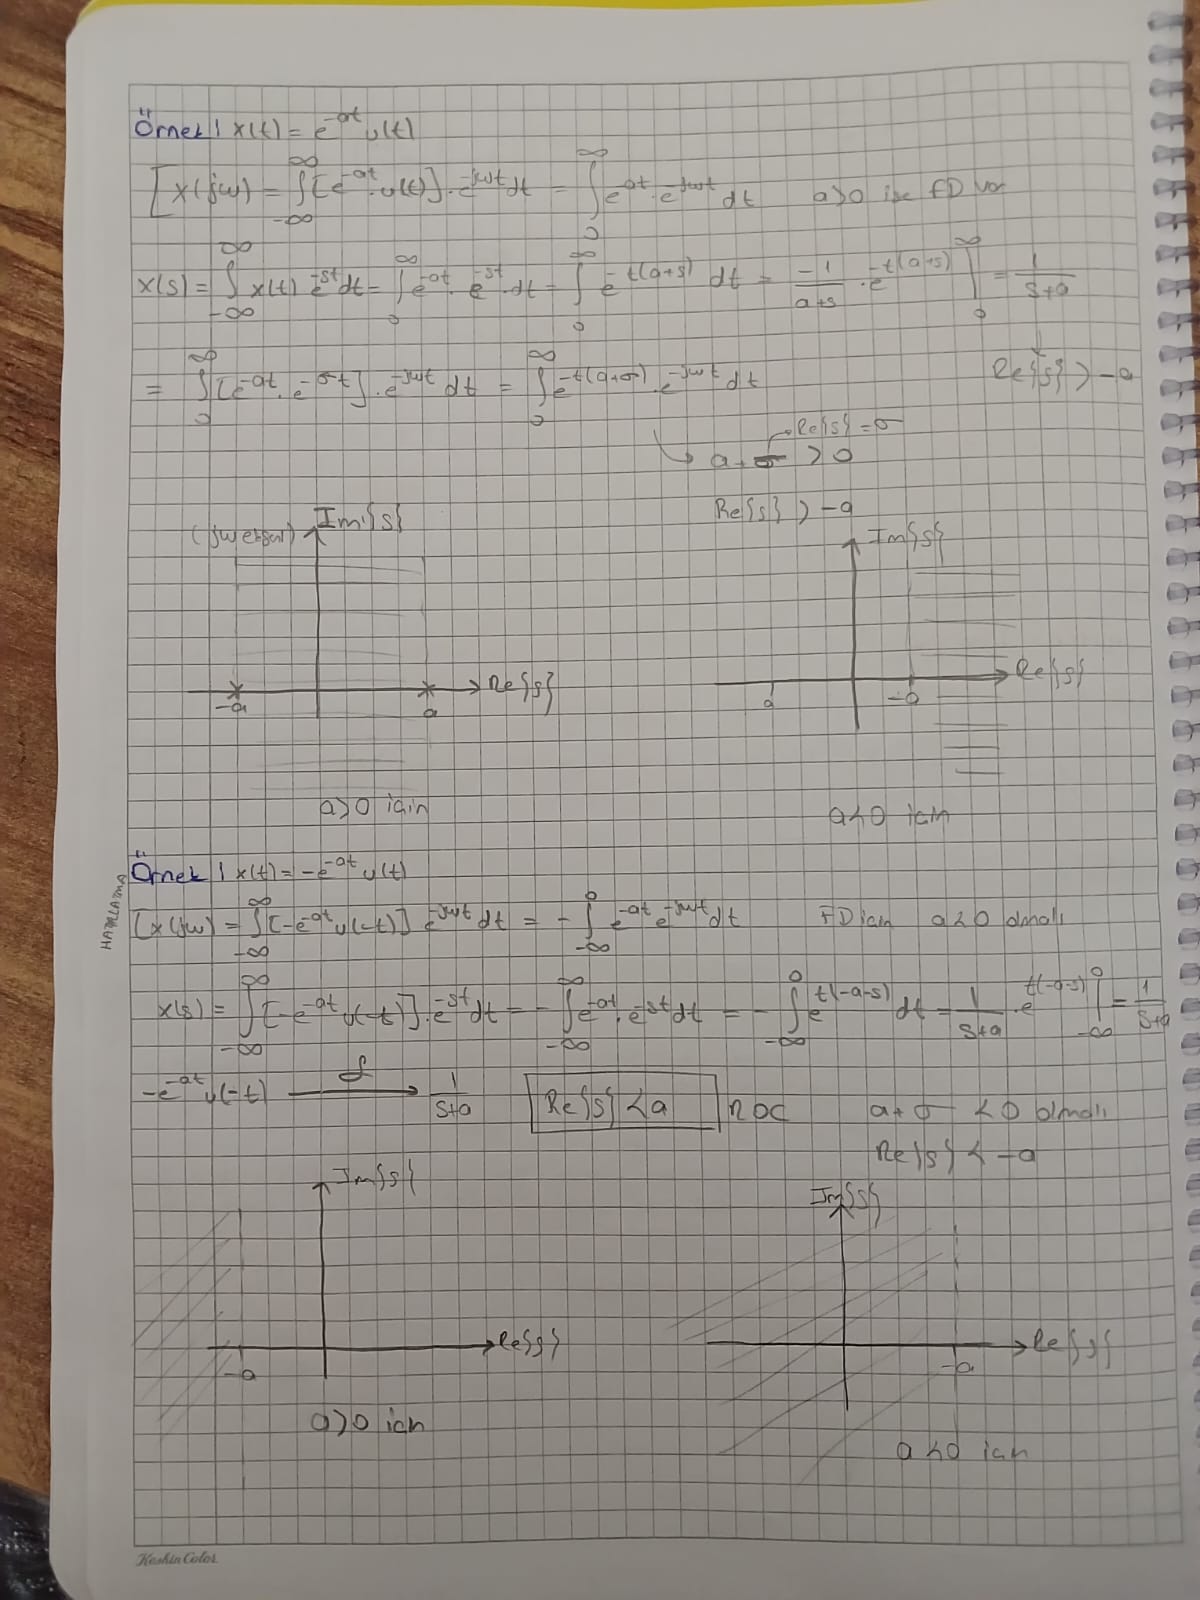 Örnek | x(t) = e^-at u(t)
[X(jw) = ∫_-∞^∞ [e^-at . u(t)] . e^-jwt dt = ∫_0^∞ e^-at . e^-jwt dt   a>0 ise FD var
x(s) = ∫_-∞^∞ x(t) e^-st dt = ∫_0^∞ e^-at . e^-st . dt = ∫_0^∞ e^-t(a+s) dt = -1/(a+s) . e^-t(a+s) |_0^∞ = 1/(s+a)
= ∫_0^∞ [e^-at . e^-σt] . e^-jwt dt = ∫_0^∞ e^-t(a+σ) . e^-jwt dt   Re{s} > -a
Re{s} = σ
a + σ > 0
Re{s} > -a
(jw ekseni) Im{s}   Im{s}
Re{s}   Re{s}
-a   a   a   -a
a>0 için   a<0 için
Örnek | x(t) = -e^-at u(t)
HATIRLATMA
[X(jw) = ∫_-∞^∞ [-e^-at u(-t)] e^-jwt dt = - ∫_-∞^0 e^-at e^-jwt dt   FD için a<0 olmalı
x(s) = ∫_-∞^∞ [-e^-at u(-t)] . e^-st dt = - ∫_-∞^∞ e^-at . e^-st dt = - ∫_-∞^0 e^t(-a-s) dt = 1/(s+a) . e^t(-a-s) |_-∞^0 = 1/(s+a)
-e^-at u(-t) ⟶^ℒ 1/(s+a)   Re{s} < a   ROC   a + σ < 0 olmalı
Re{s} < -a
Im{s}   Im{s}
Re{s}   Re{s}
-a   -a
a>0 için
a<0 için
Keskin Color